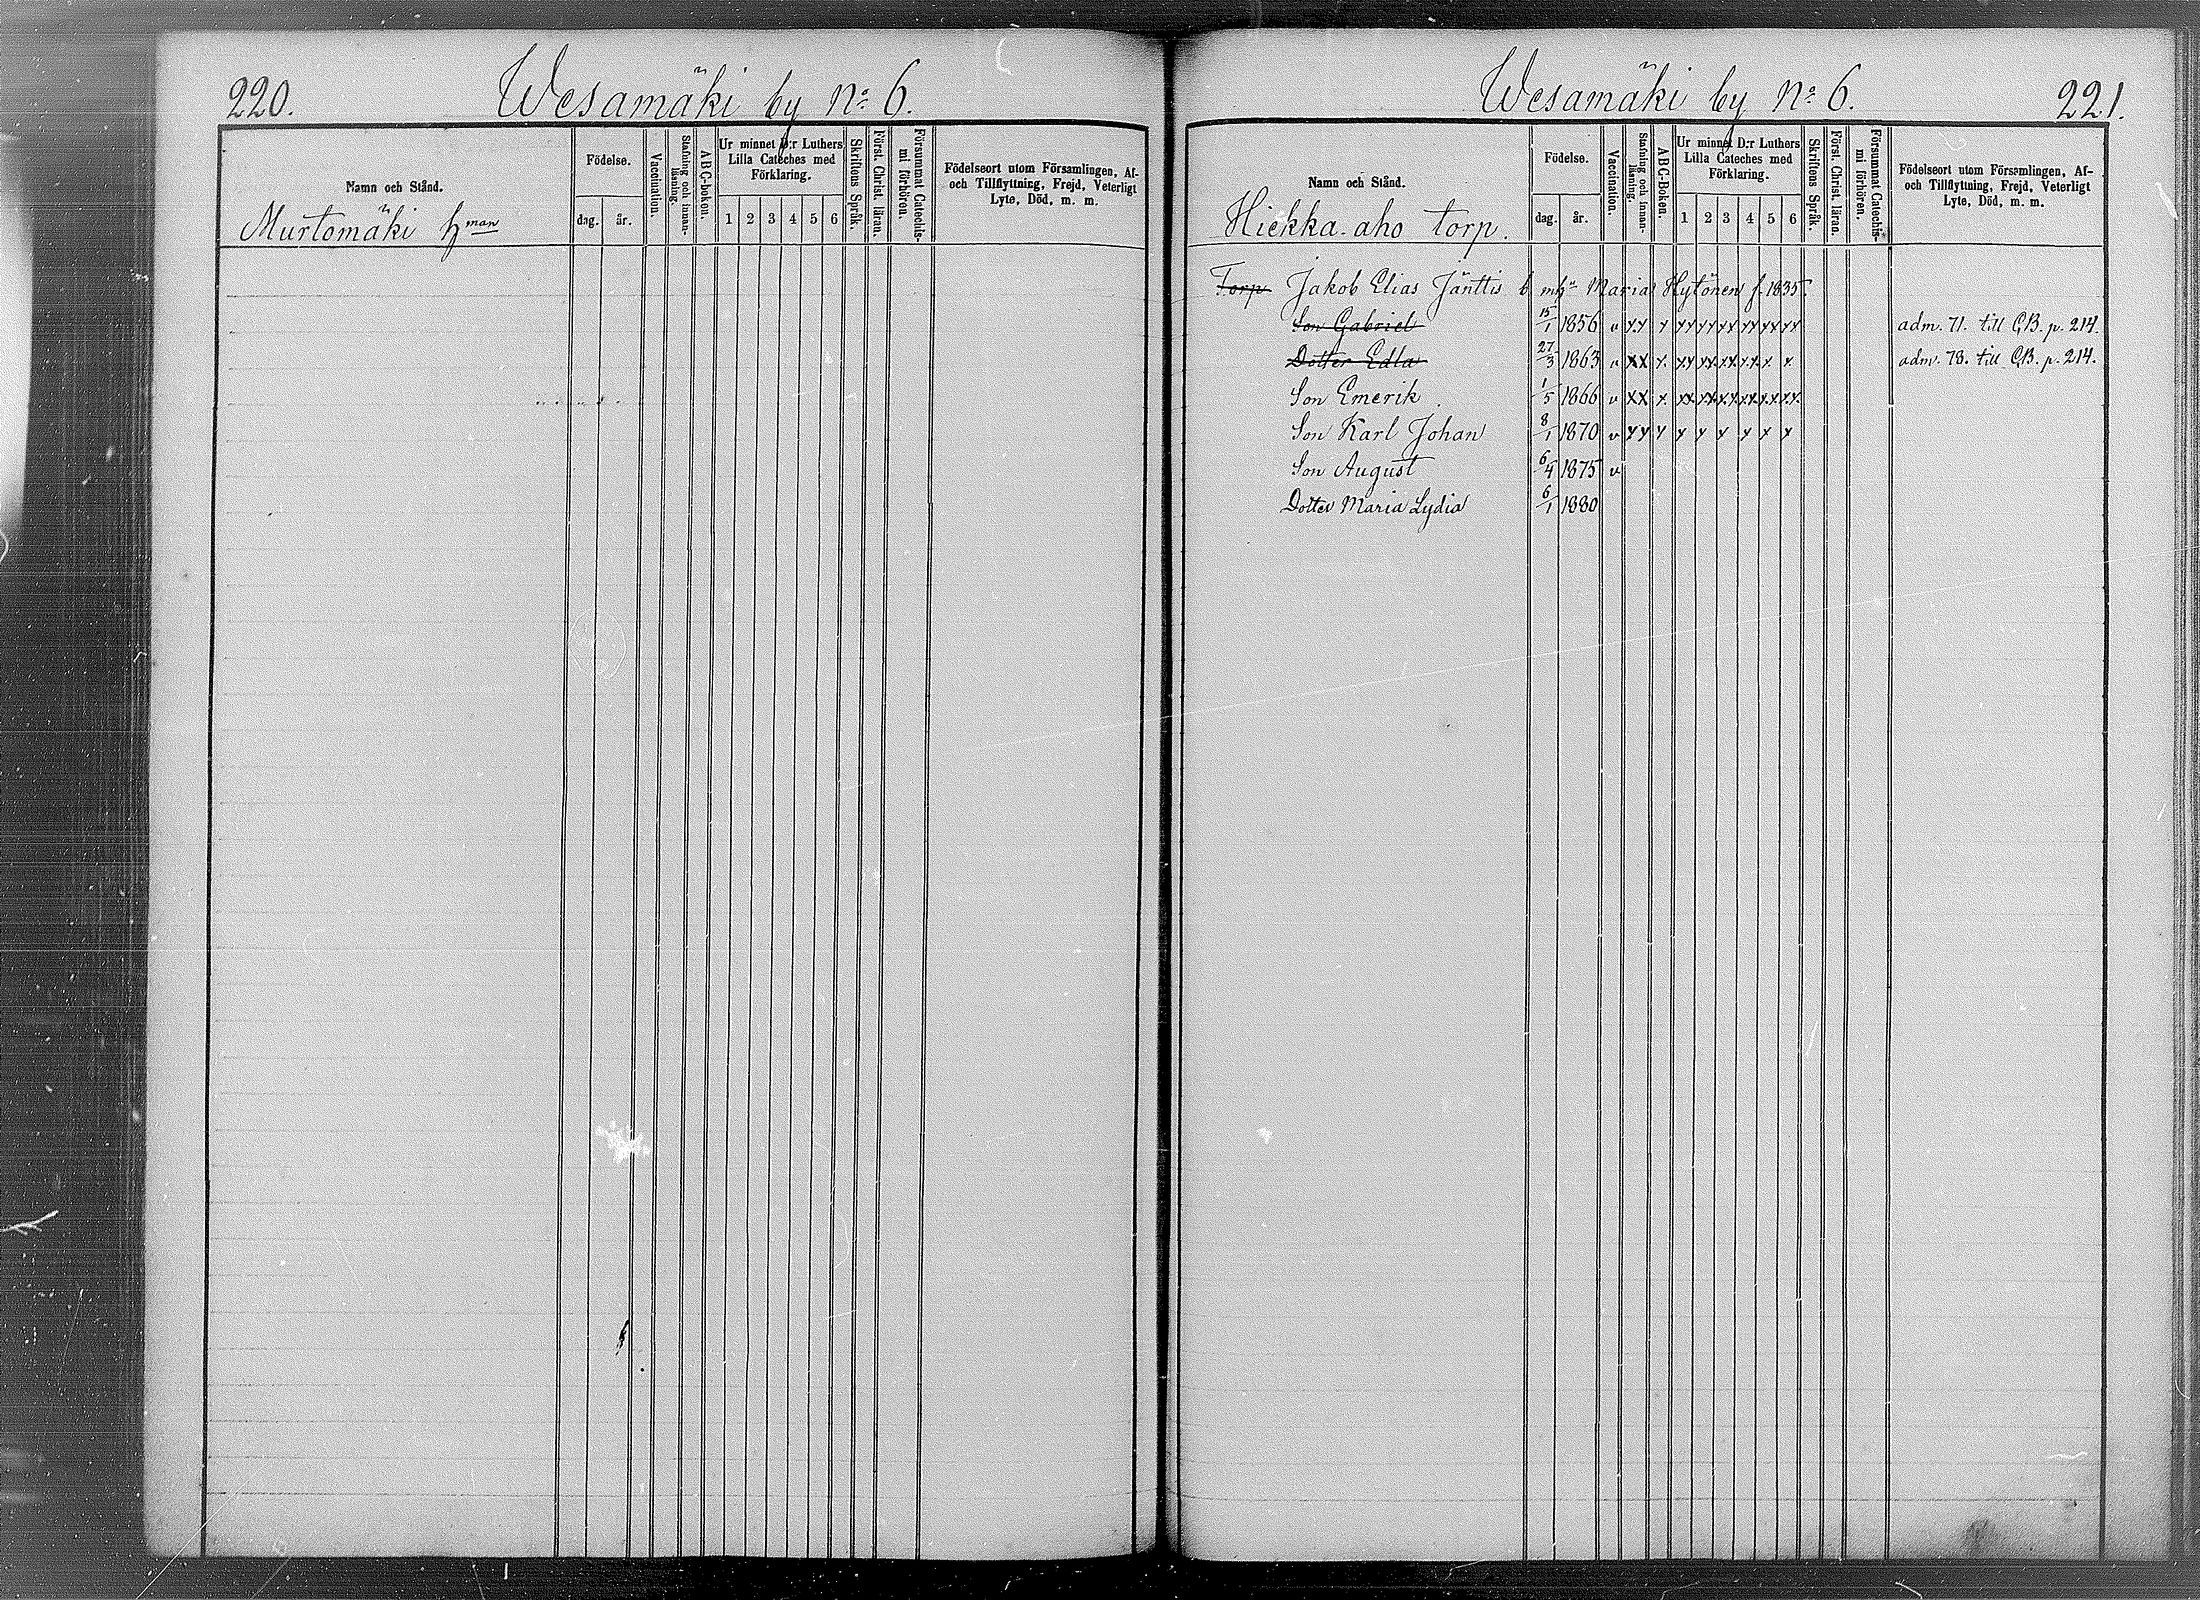 220.
Wesamäki by No 6.
Namn och Stånd.
Murtomäki hman
Födelse.
dag. år.
Vaccination.
Stafning och innanläsning.
A B C-boken.
Ur minnet D:r Luthers
Lilla Cateches med
Förklaring.
1 2 3 4 5 6
Skriftens Språk.
Först. Christ. läran.
Försummat Catechismi förhören.
Födelseort utom Församlingen, Af-
och Tillflyttning, Frejd, Veterligt
Lyte, Död, m. m.
Wesamäki by No 6.
221.
Namn och Stånd.
Hiekka-aho torp.
Födelse.
dag. år.
Vaccination.
Stafning och innanläsning.
A B C-Boken.
Ur minnet D:r Luthers
Lilla Cateches med
Förklaring.
1 2 3 4 5 6
Skriftens Språk.
Först. Christ. läran.
Försummat Catechismi förhören.
Födelseort utom Församlingen, Af-
och Tillflyttning, Frejd, Veterligt
Lyte, Död, m. m.
Torp Jakob Elias Jänttis Maria Hytönen f. 1835.
Son Gabriel 15/1 1856 v xx x xx xx xx xx xx xx adm. 71. till CB. p. 214.
Dotter Edla 27/3 1863 v xx x xx xx xx xx x x adm. 78. till CB. p. 214.
Son Emerik 1/5 1866 v xx x xx xx xx xx xx xx
Son Karl Johan 8/1 1870 v xx x x x x x x x
Son August 6/4 1875 v
Dotter Maria Lydia 6/1 1880